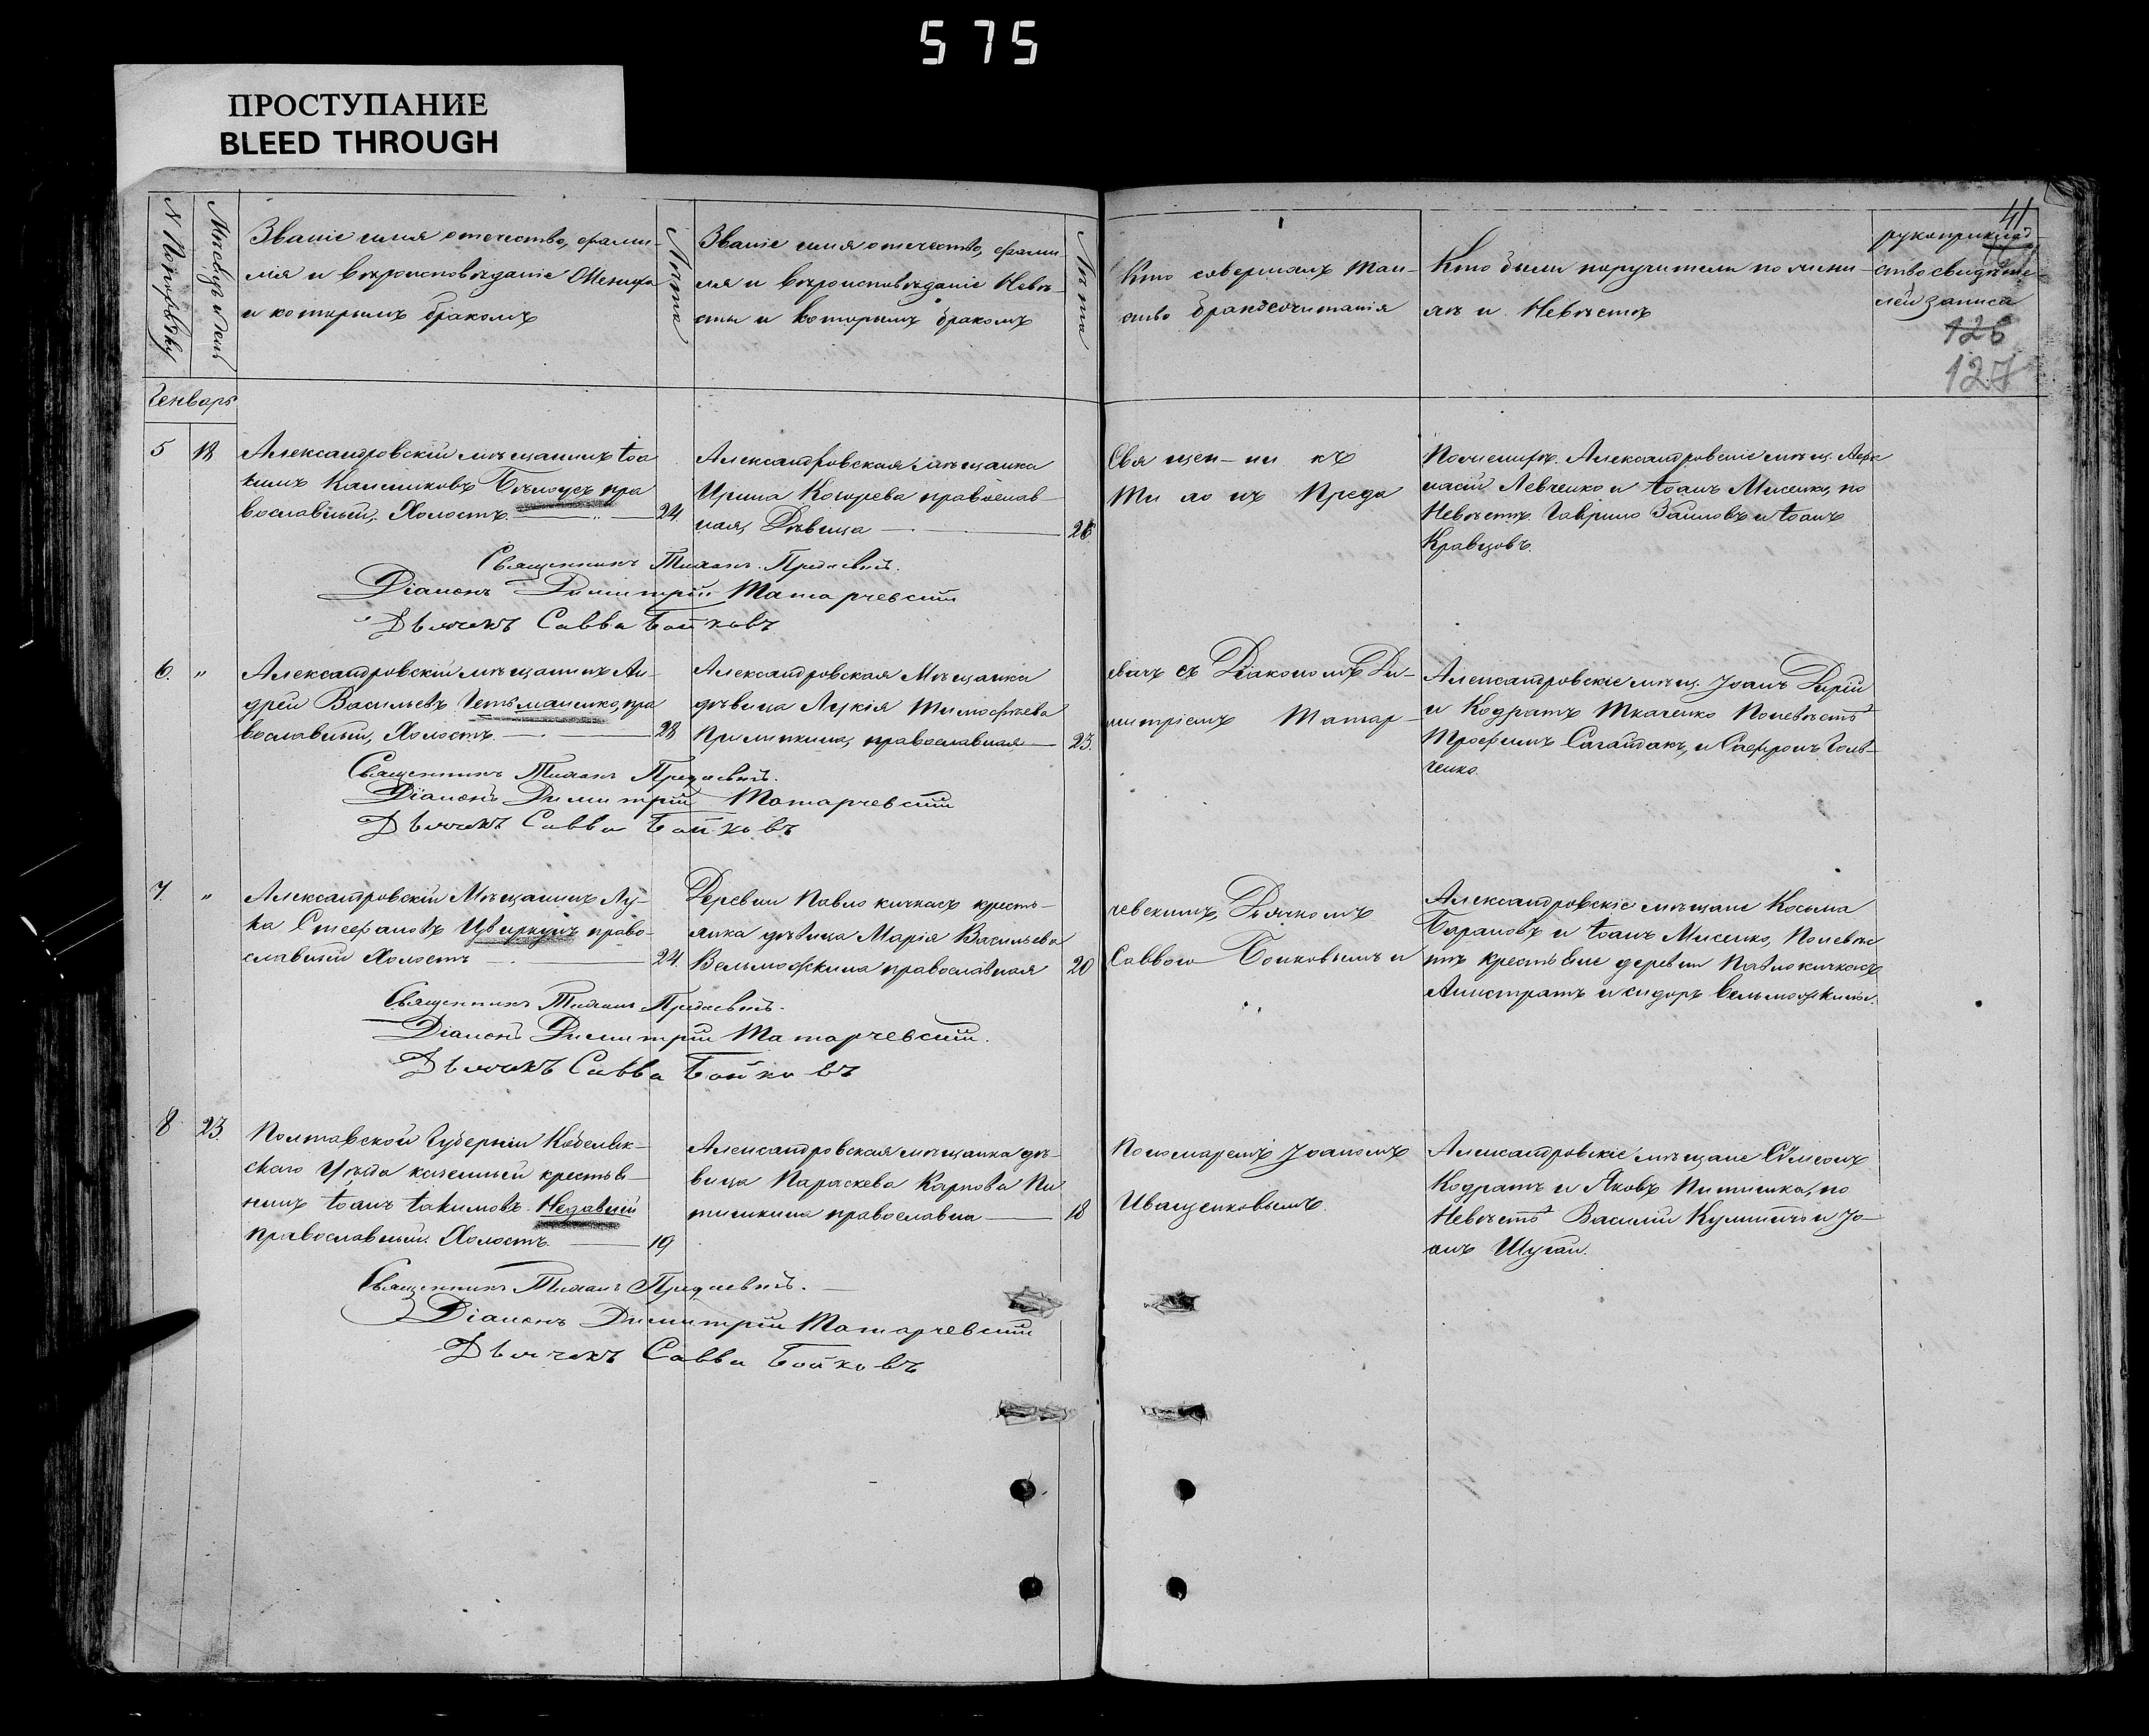 575
ПРОСТУПАНИЕ
BLEED THROUGH
41
N Попорядку
Мѣсяцъ и день
Званіе имя отечество, фами-
лія и вѣроисповѣданіе Жениха
и которымъ бракомъ
Лѣта
Званіе имя отечество, фами-
лія и вѣроисповѣданіе Невѣ-
сты и которымъ бракомъ
Лѣта
Кто совершалъ таин-
ство бракосочитанія
Кто были поручители по жени-
хѣ и Невѣстѣ
рукоприклад
ство свидѣте-
лей записа
126
127
Генварь
5 18
Александровскій мѣщанинъ Іоа
кимъ Калениковъ Бѣлоусъ пра
вославный, Холостъ. 24.
Александровская мѣщанка
Ирина Когорева православ
ная, Дѣвица 26
Священ-ни къ
Ти хо нъ Преда
Поженихѣ. Александровскіе мѣщ.
Левченко и Іоанъ Мисенко, по
Невѣстѣ. Гаврило Заиловъ и Іоанъ
Кравцовъ.
Священникъ Тихонъ Предаевичъ.
Діаконъ Димитрій Матарчевскій
Дьячекъ Савва Бойковъ
6. "
Александровскій мѣщанинъ Ан-
дрей Васильевъ Гетьманенко, пра
вославный, Холостъ. 28
Александровская Мѣщанка
дѣвица Лукія Тимофѣева
православная 23.
евичъ съ Діакономъ Ди-
митріемъ Матар-
Александровскіе мѣщ. Іоанъ Дирій
и Кодратъ Ткаченко Поневѣстѣ
Трофимъ Сагайдакъ, и Сафронъ
ченко.
Священникъ Тихонъ Предаевичъ.
Діаконъ Димитрій Матарчевскій
Дьячекъ Савва Бойковъ
7. "
Александровскій Мѣщанинъ Лу-
ка Стефановъ Цвиркунъ право-
славный Холостъ 24.
Деревни Павло кичкасъ кресть-
янка дѣвица Марія Васильева
Вельможкина православная 20
чевскимъ, Дьячкомъ
Саввою Бойковымъ и
Александровскіе мѣщане Косьма
Барановъ и Іоанъ Мисенко, Поневѣс
тѣ крестьяне деревни Павлокичкасъ
Алистратъ и сидоръ Вельможкины.
Священникъ Тихонъ Предаевичъ.
Діаконъ Димитрій Матарчевскій.
Дьячекъ Савва Бойковъ
8 23.
Полтавской Губерніи Кобеляк-
скаго Уѣзда казенный крестья-
нинъ Іоанъ Іакимовъ Недавній
православный. Холостъ. 19
Александровская мѣщанка дѣ-
вица Параскева Карпова Пи
тинкина православна 18
Пономаремъ Іоаномъ
Иващенковымъ.
Александровскіе мѣщане Сѵмеонъ
Кодратъ и Яковъ Питинка, по
Невѣстѣ Василій Кулиничъ и Іо-
анъ Шугай.
Священникъ Тихонъ Предаевичъ.
Діаконъ Димитрій Матарчевскій
Дьячекъ Савва Бойковъ